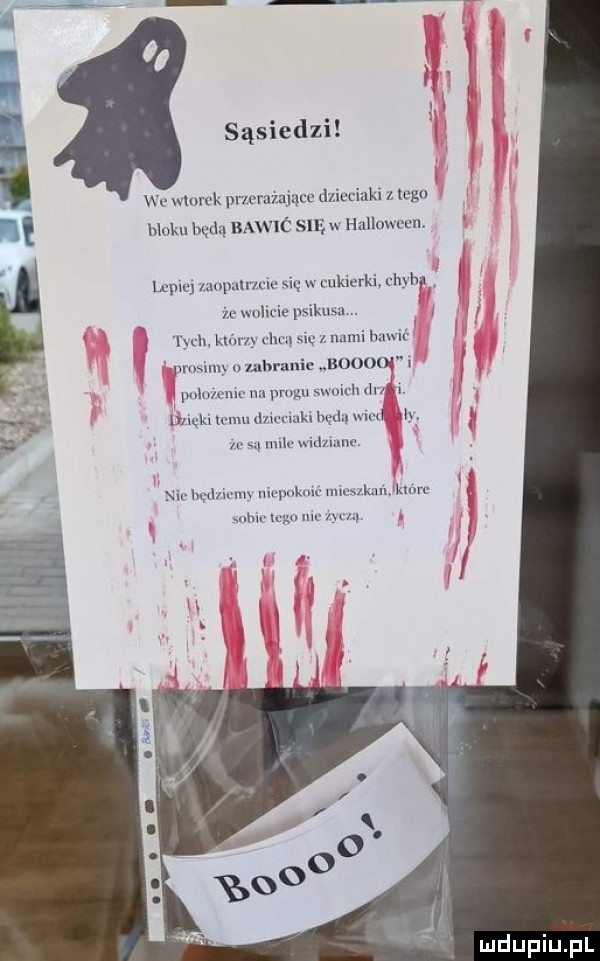 Sąsiedzi!
We wtorek przerażające dzieciaki z tego
bloku będą BAWIĆ SIĘ w Halloween.
Lepiej zaopatrzcie się w cukierki, chyba
że wolicie psikusa...
Tych, którzy chcą się z nami bawić
prosimy o zabranie „BOOOO!" i
położenie na progu swoich drzwi.
Dzięki temu dzieciaki będą wiedziały,
że są mile widziane.
Nie będziemy niepokoić mieszkań, które
sobie tego nie życzą.
Boooo!
mdupiu.pl